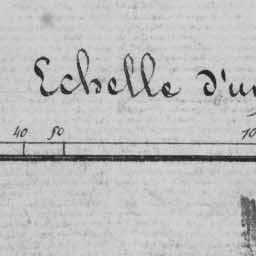 Echelle d'un
40 50 10